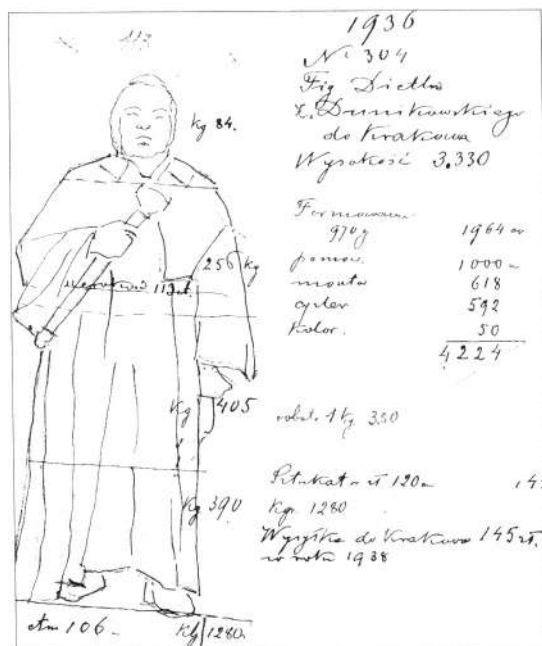 113
1936
N: 304
Fig Dietla
X. Dunikowskiego
do Krakowa
Wysokość 3.330
Kg 84.
Formowanie
970 g 1964
256 kg
pomow. 1000
monta 618
cyzler 592
Kolor. 50
4224
Kg 405
robot. 1 kg 3.30
Kg 390
Sztukat zł 120
Kgr. 1280
Wysyłka do Krakowa 145 zł.
w roku 1938
106
Kg 1280